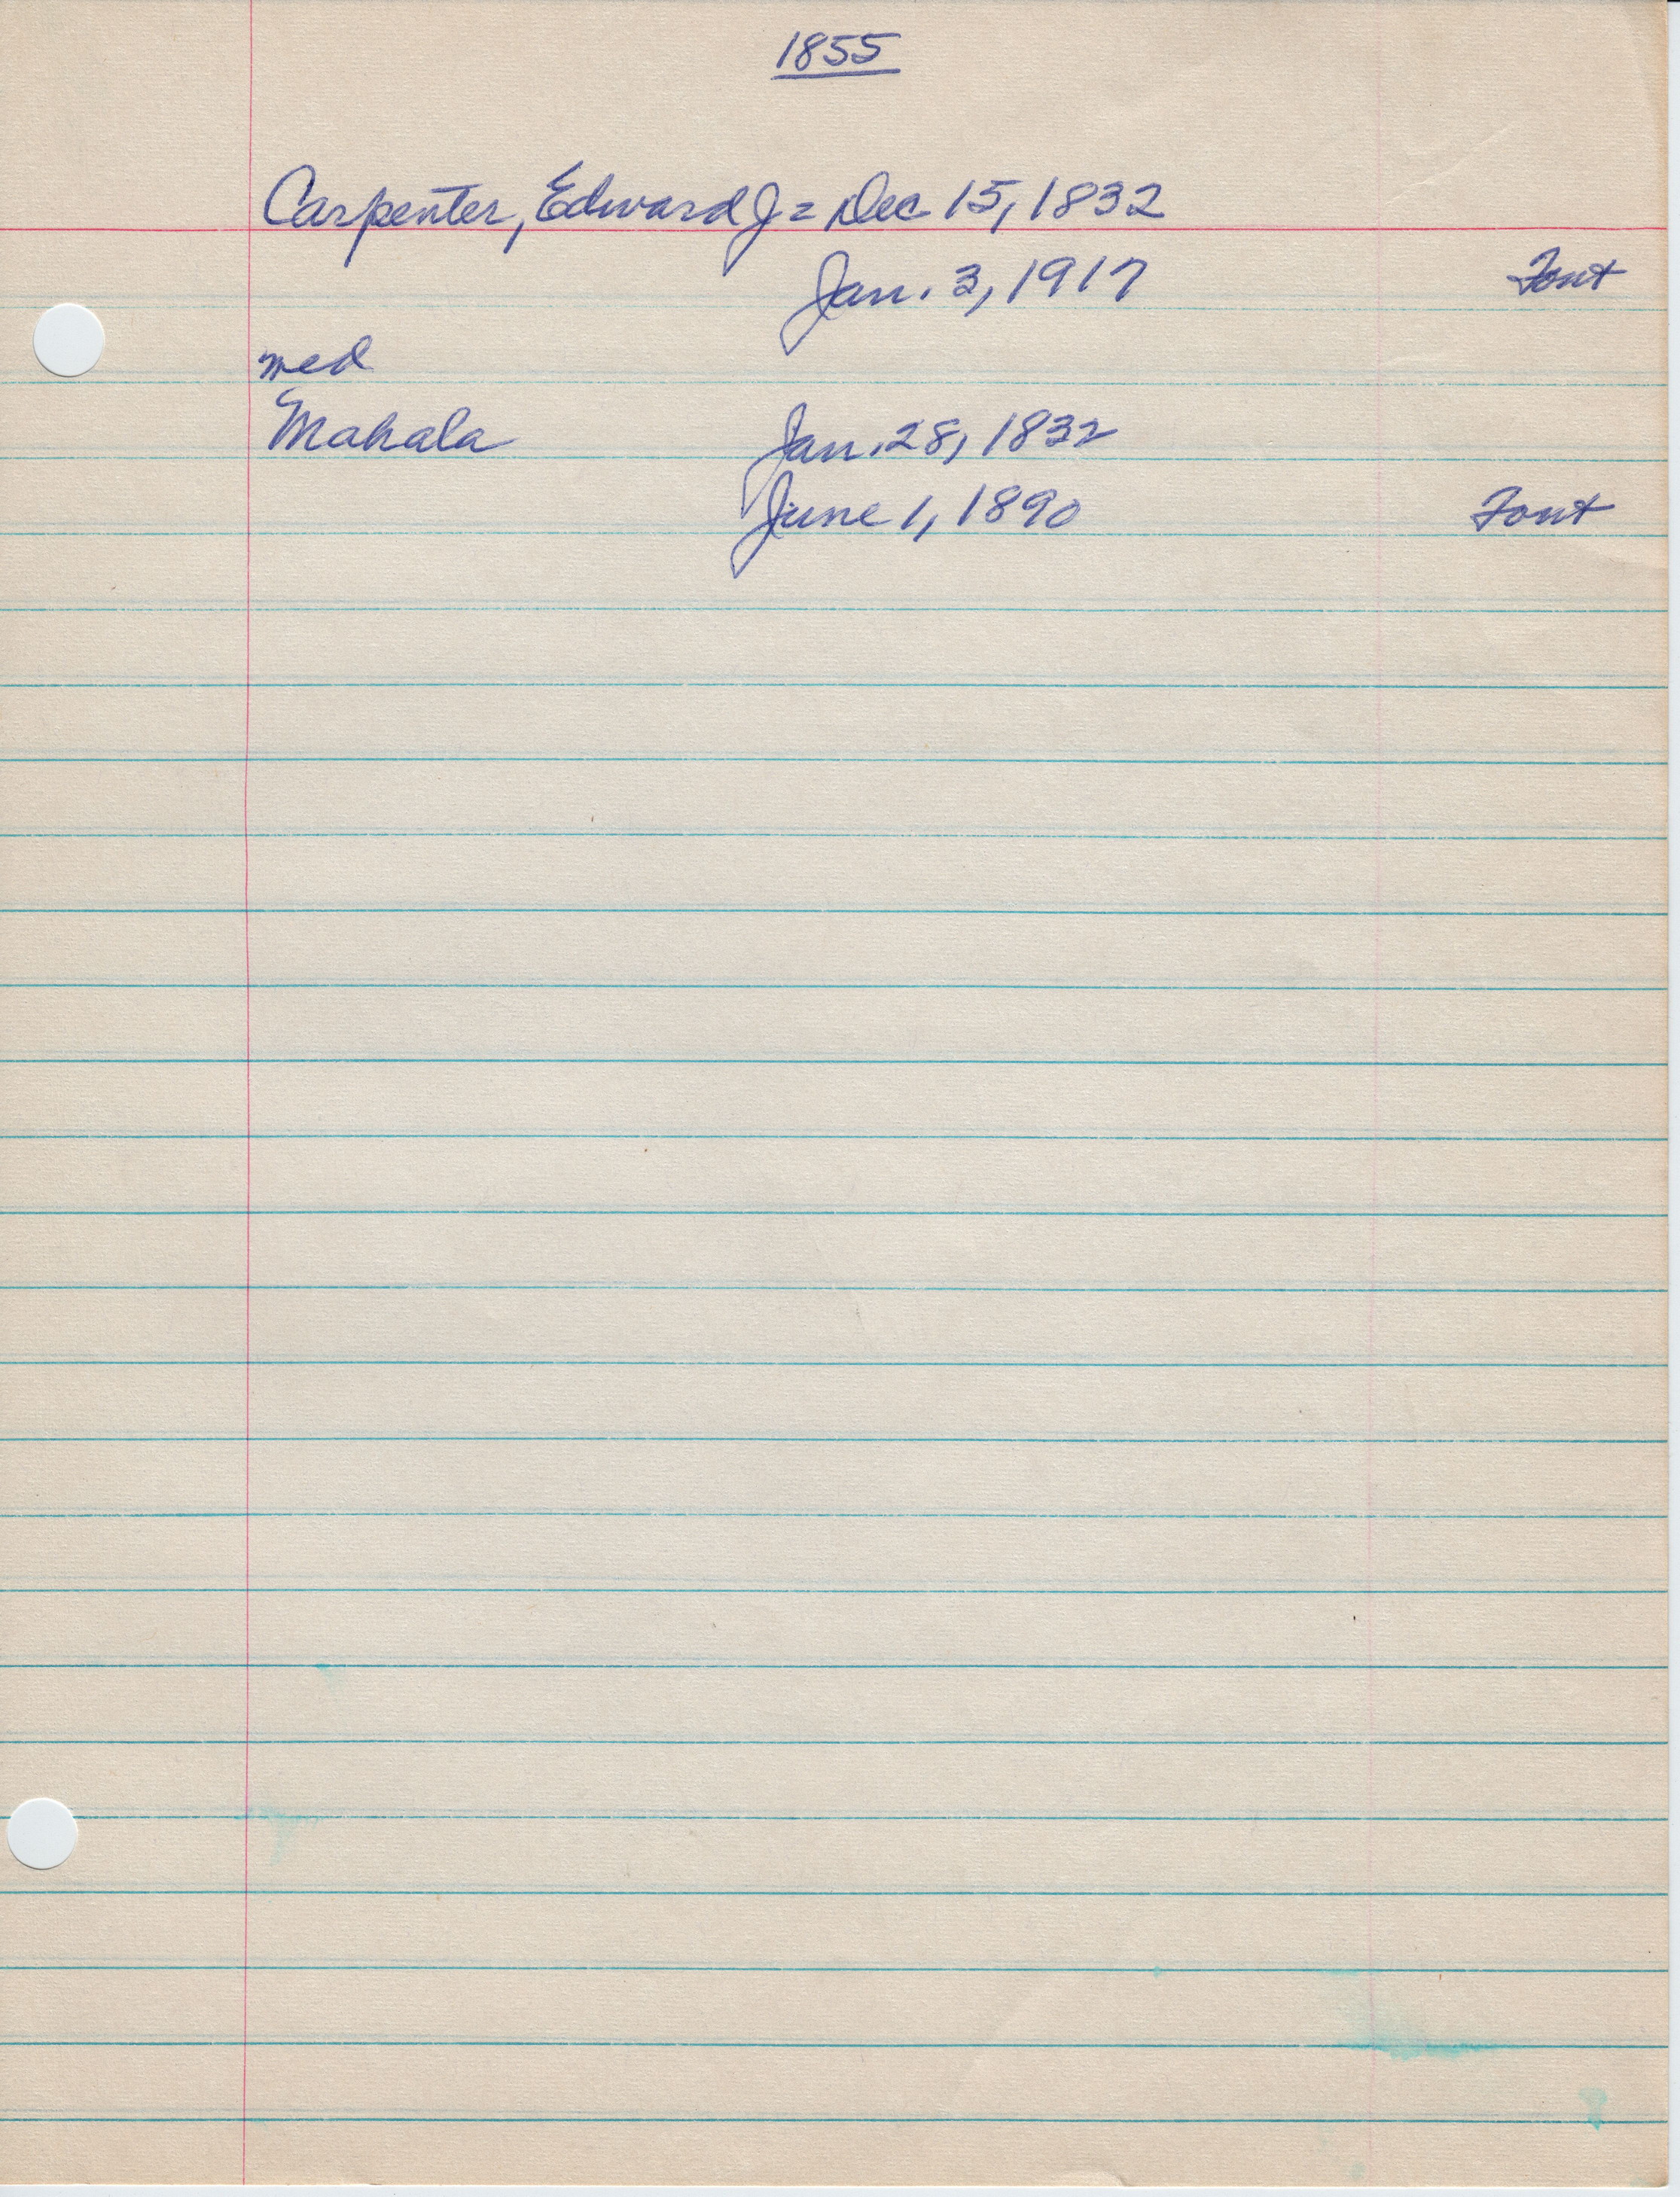 1855
Carpenter, Edward J = Dec 15, 1832
Jan. 3, 1917 Font
med
Mahala Jan. 28, 1832
June 1, 1890 Font